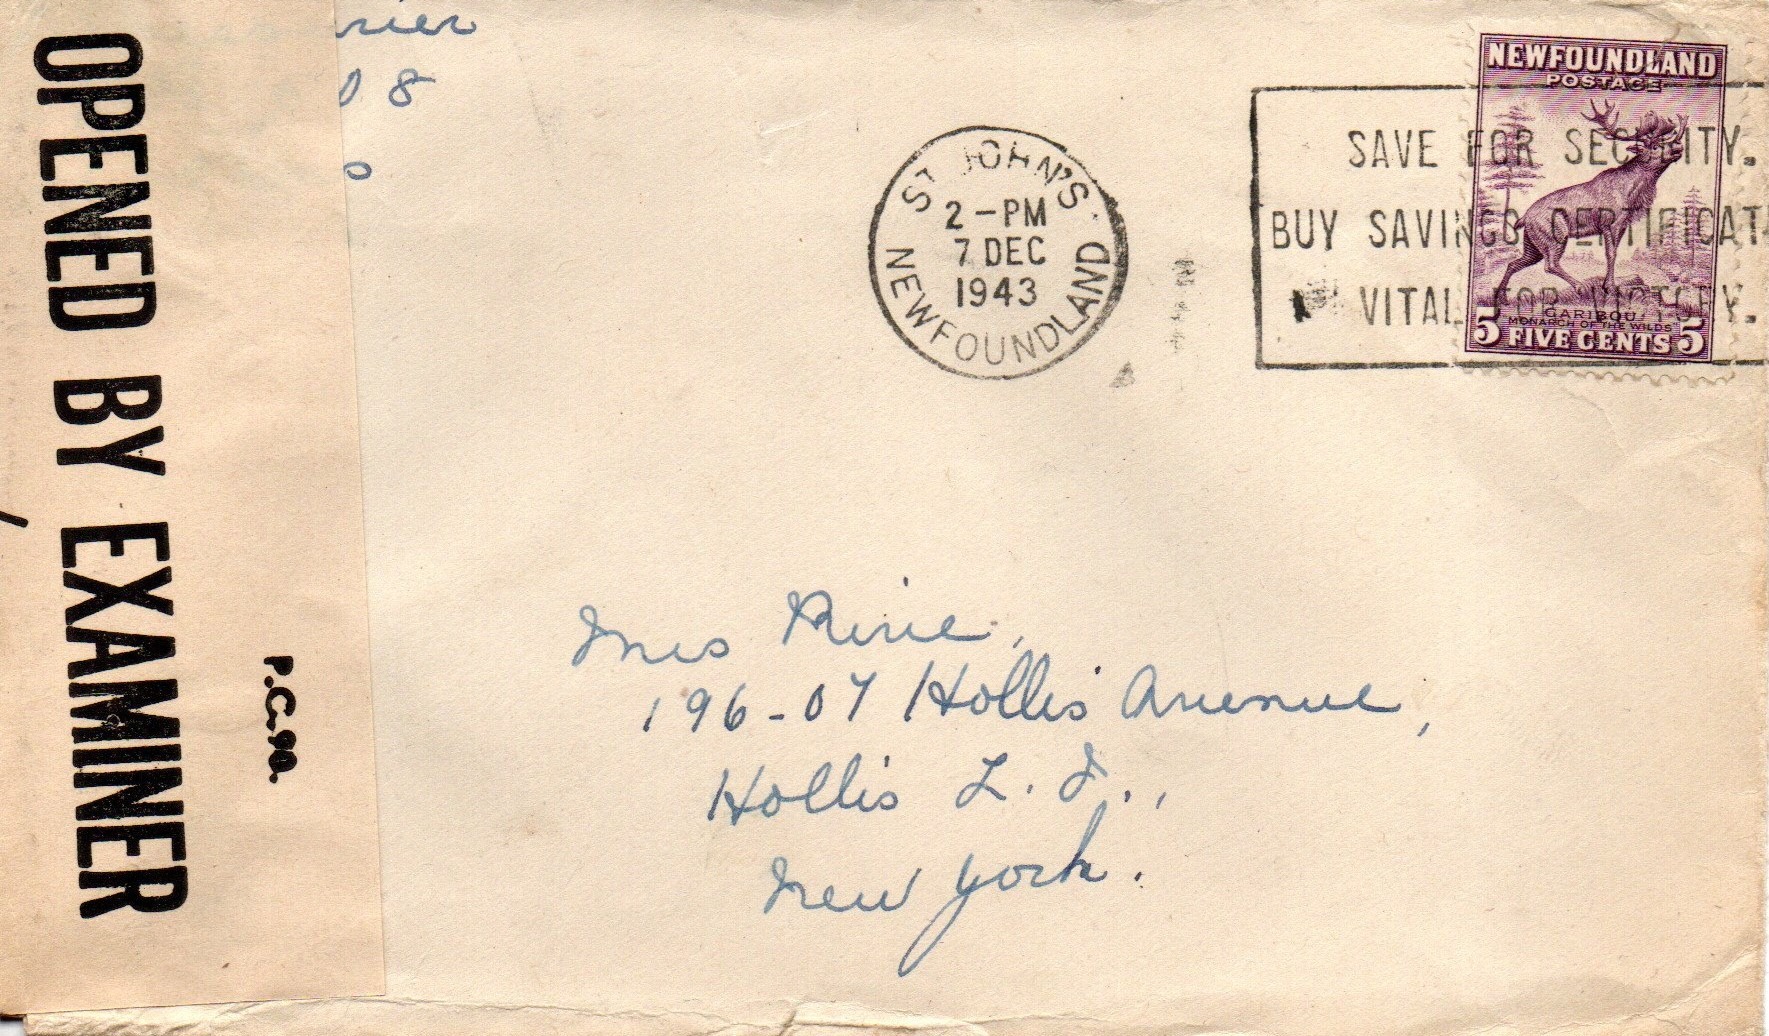 OPENED BY EXAMINER
P.C. 90.
rier
08
ST JOHN'S
2-PM
7 DEC
1943
NEWFOUNDLAND
SAVE FOR SECURITY.
BUY SAVINGS CERTIFICAT
VITAL FOR VICTORY.
NEWFOUNDLAND
POSTAGE
CARIBOU
MONARCH OF THE WILDS
5 FIVE CENTS 5
Mrs
196-07 Hollis Avenue,
Hollis L. I.,
New York.